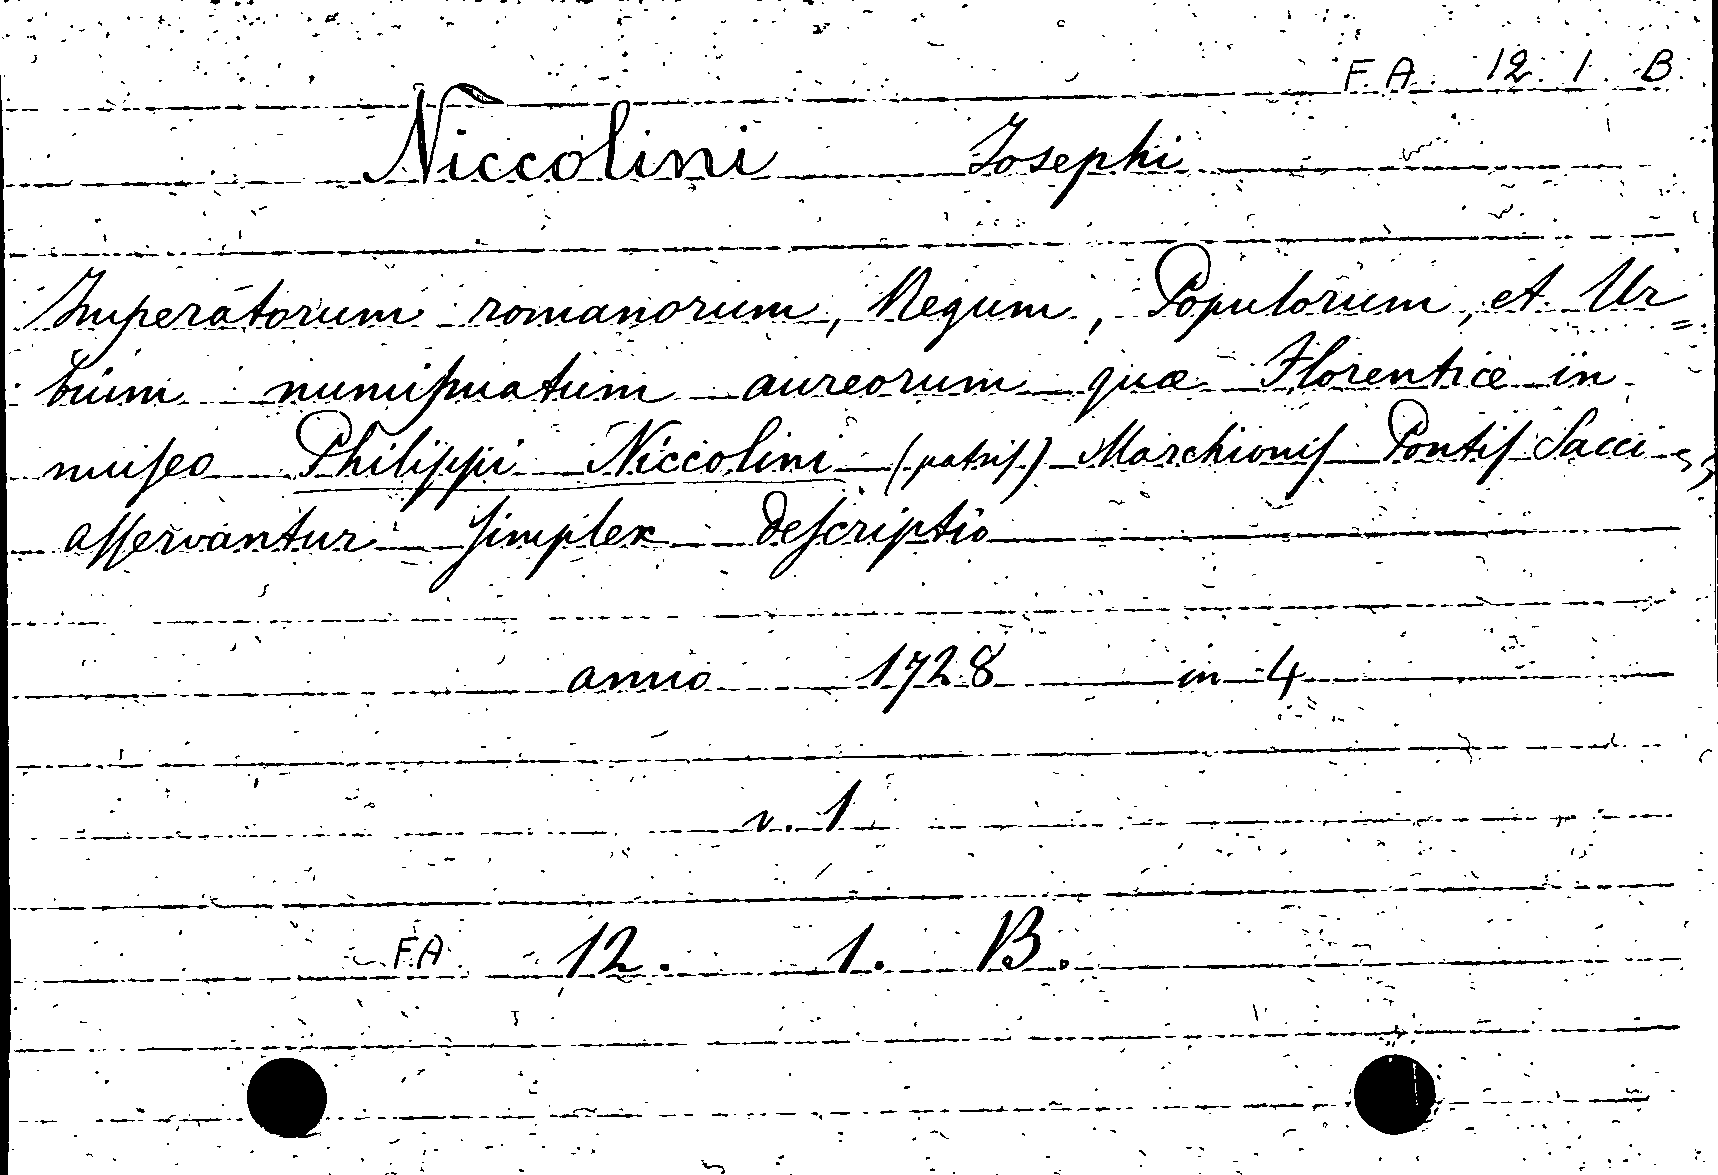 F.A. 12. 1. B.
Niccolini Josephi
Imperatorum romanorum, Regum, Populorum, et Ur=
bium numiſmatum aureorum quæ Florentiæ in
muſeo Philippi Niccolini (patriſ) Marchioniſ Pontiſ Sacci
aſſervantur ſimplex deſcriptio
anno 1728 in 4
v. 1
F.A. 12. 1. B.